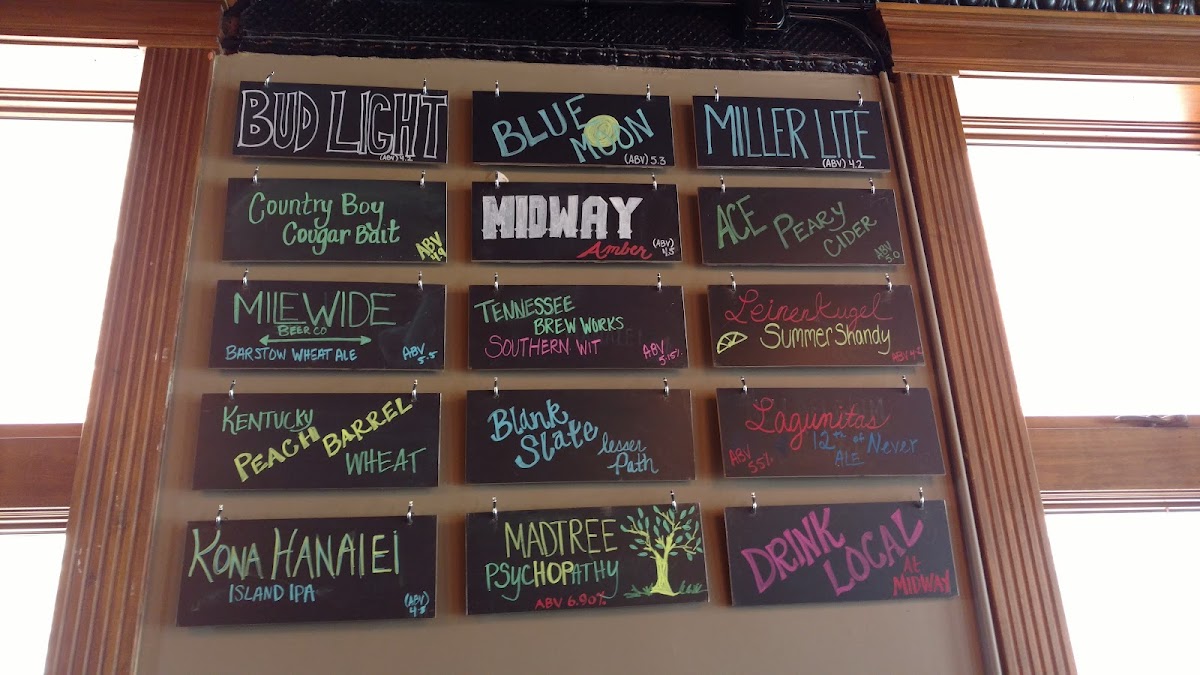 BUD LIGHT
(ABV) 4.2
BLUE
MOON
(ABV) 5.3
MILLER LITE
(ABV) 4.2
Country Boy
Cougar Bait
ABV
4.9
MIDWAY
Amber
(ABV)
4.5
ACE PEARY
CIDER
ABV
5.0
MILEWIDE
BEER CO
BARSTOW WHEAT ALE
ABV
5.5
TENNESSEE
BREW WORKS
SOUTHERN WIT
ABV
5.15%
Leinenkugel
Summer Shandy
ABV 4.2
KENTUCKY
PEACH BARREL
WHEAT
Blank
Slate lesser
Path
Lagunitas
12th of Never
ALE
ABV
55%
KONA HANALEI
ISLAND IPA
(ABV)
4.5
MADTREE
PSYCHOPATHY
ABV 6.90%
DRINK
LOCAL
At
MIDWAY